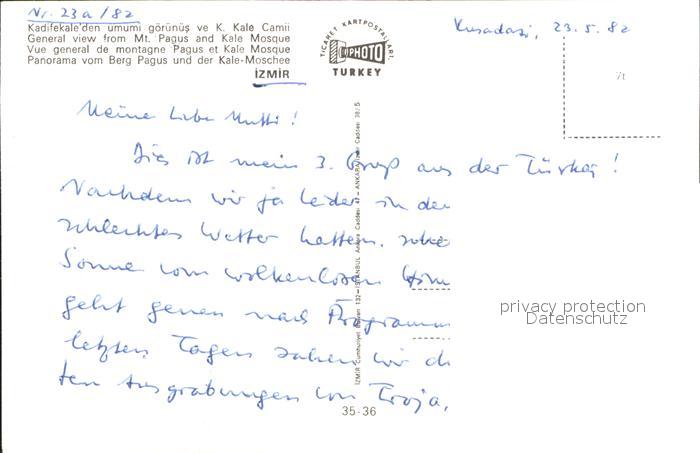 Nr. 23a/82
Kadifekale'den umumi görünüş ve K. Kale Camii
General view from Mt. Pagus and Kale Mosque
Vue general de montagne Pagus et Kale Mosque
Panorama vom Berg Pagus und der Kale-Moschee
İZMİR
TİCARET KARTPOSTALLARI
PHOTO
TURKEY
Kusadasi, 23.5.82
Meine liebe Mutti!
Dies ist mein 3. Gruß aus der Türkei!
Nachdem wir ja leider in der
schlechtes Wetter hatten,
Sonne vom wolkenlosen Him
geht genau nach Programm
letzten Tagen sahen wir di
ten Ausgrabungen von Troja,
İZMİR Cumhuriyet 132 — İSTANBUL Ankara Caddesi 47 — ANKARA Caddesi 38/5
privacy protection
Datenschutz
35-36